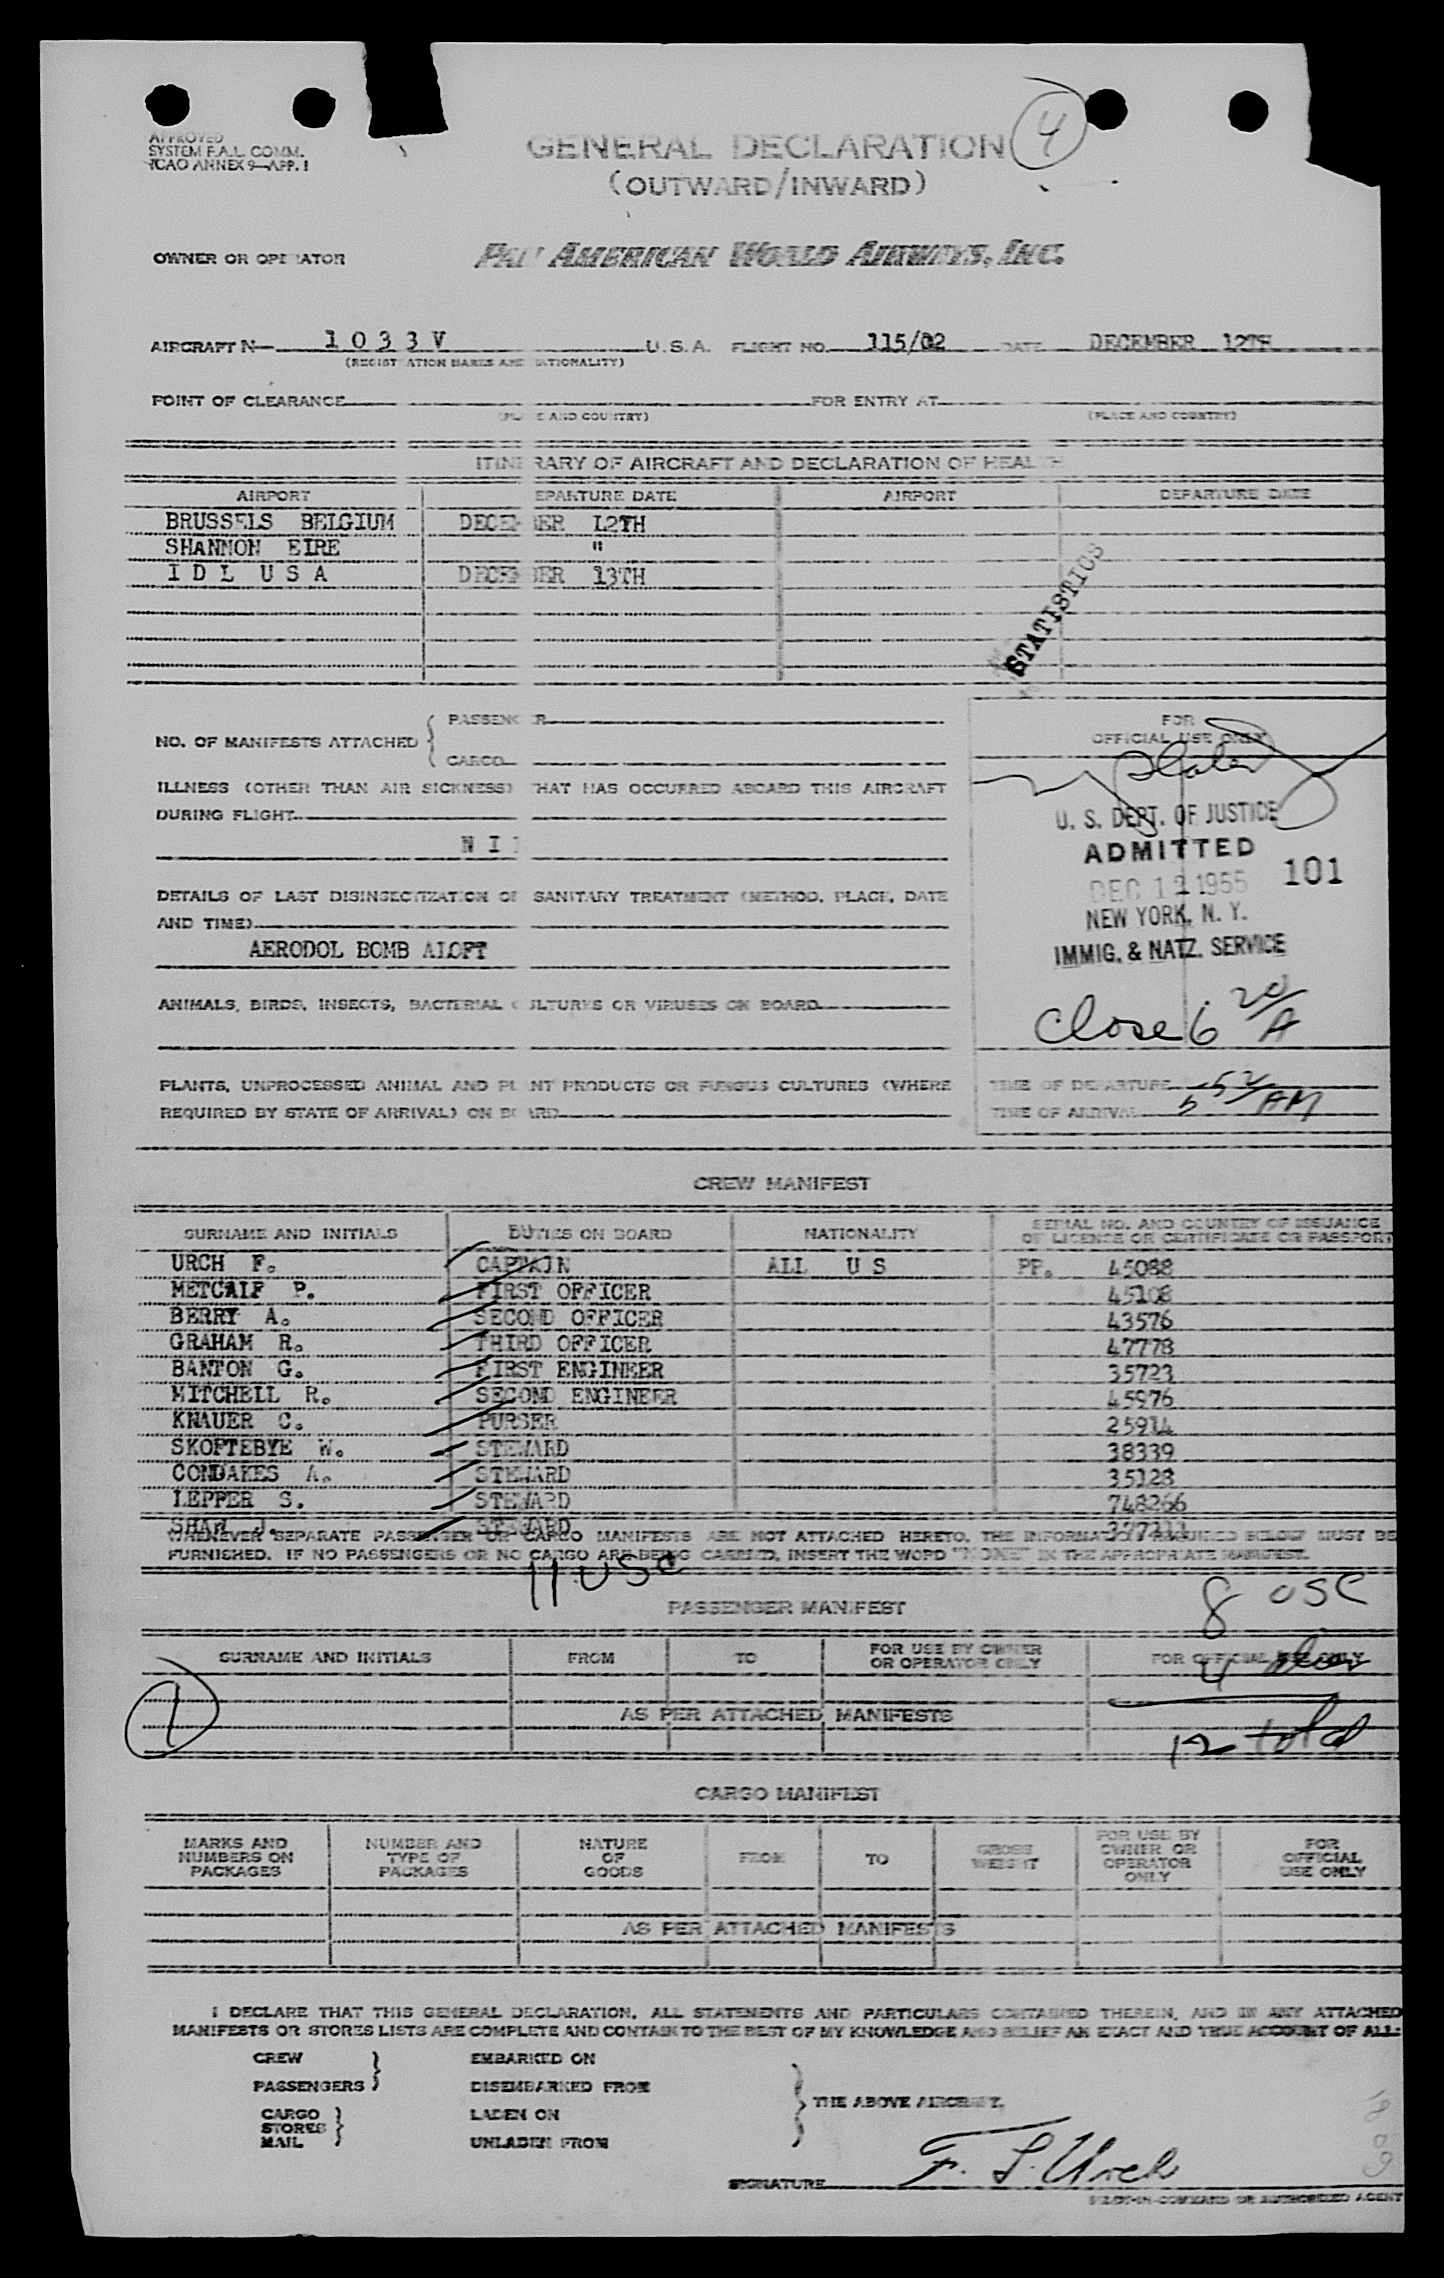 APPROVED
SYSTEM F.A.L. COMM.
ICAO ANNEX 9—APP. 1
GENERAL DECLARATION
4
(OUTWARD/INWARD)
OWNER OR OPERATOR
PAN AMERICAN WORLD AIRWAYS, INC.
AIRCRAFT N— 1 0 3 3 V U.S.A. FLIGHT NO. 115/02 DATE DECEMBER 12TH
(REGISTRATION MARKS AND NATIONALITY)
POINT OF CLEARANCE FOR ENTRY AT
(PLACE AND COUNTRY) (PLACE AND COUNTRY)
ITINERARY OF AIRCRAFT AND DECLARATION OF HEALTH
AIRPORT DEPARTURE DATE AIRPORT DEPARTURE DATE
BRUSSELS BELGIUM DECEMBER 12TH
SHANNON EIRE "
I D L U S A DECEMBER 13TH
STATISTICS
NO. OF MANIFESTS ATTACHED { PASSENGER
CARGO
FOR
OFFICIAL USE ONLY
ILLNESS (OTHER THAN AIR SICKNESS) THAT HAS OCCURRED ABOARD THIS AIRCRAFT
DURING FLIGHT
N I L
U. S. DEPT. OF JUSTICE
ADMITTED
DEC 12 1955 101
NEW YORK, N. Y.
IMMIG. & NATZ. SERVICE
DETAILS OF LAST DISINSECTIZATION OR SANITARY TREATMENT (METHOD, PLACE, DATE
AND TIME)
AERODOL BOMB ALOFT
ANIMALS, BIRDS, INSECTS, BACTERIAL CULTURES OR VIRUSES ON BOARD
Close 6 20/A
PLANTS, UNPROCESSED ANIMAL AND PLANT PRODUCTS OR FUNGUS CULTURES (WHERE
REQUIRED BY STATE OF ARRIVAL) ON BOARD
TIME OF DEPARTURE
TIME OF ARRIVAL 5 52 AM
CREW MANIFEST
SURNAME AND INITIALS DUTIES ON BOARD NATIONALITY SERIAL NO. AND COUNTRY OF ISSUANCE
OF LICENCE OR CERTIFICATE OR PASSPORT
URCH F. CAPTAIN ALL U S PP. 45088
METCALF P. FIRST OFFICER 45108
BERRY A. SECOND OFFICER 43576
GRAHAM R. THIRD OFFICER 47778
BANTON G. FIRST ENGINEER 35723
MITCHELL R. SECOND ENGINEER 45976
KNAUER C. PURSER 25914
SKOFTEBYE W. STEWARD 38339
CONDAKES A. STEWARD 35128
LEPPER S. STEWARD 748266
SHAW J. STEWARD
WHENEVER SEPARATE PASSENGER OR CARGO MANIFESTS ARE NOT ATTACHED HERETO, THE INFORMATION REQUIRED BELOW MUST BE
FURNISHED. IF NO PASSENGERS OR NO CARGO ARE BEING CARRIED, INSERT THE WORD "NONE" IN THE APPROPRIATE MANIFEST.
11 USC
8 USC
PASSENGER MANIFEST
SURNAME AND INITIALS FROM TO FOR USE BY OWNER
OR OPERATOR ONLY FOR OFFICIAL USE ONLY
4 alien
1
AS PER ATTACHED MANIFESTS
12 total
CARGO MANIFEST
MARKS AND
NUMBERS ON
PACKAGES
NUMBER AND
TYPE OF
PACKAGES
NATURE
OF
GOODS
FROM
TO
GROSS
WEIGHT
FOR USE BY
OWNER OR
OPERATOR
ONLY
FOR
OFFICIAL
USE ONLY
AS PER ATTACHED MANIFESTS
I DECLARE THAT THIS GENERAL DECLARATION, ALL STATEMENTS AND PARTICULARS CONTAINED THEREIN, AND IN ANY ATTACHED
MANIFESTS OR STORES LISTS ARE COMPLETE AND CONTAIN TO THE BEST OF MY KNOWLEDGE AND BELIEF AN EXACT AND TRUE ACCOUNT OF ALL:
CREW EMBARKED ON
PASSENGERS DISEMBARKED FROM
THE ABOVE AIRCRAFT.
CARGO LADEN ON
STORES
MAIL UNLADEN FROM
SIGNATURE F. S. Urch
PILOT-IN-COMMAND OR AUTHORIZED AGENT